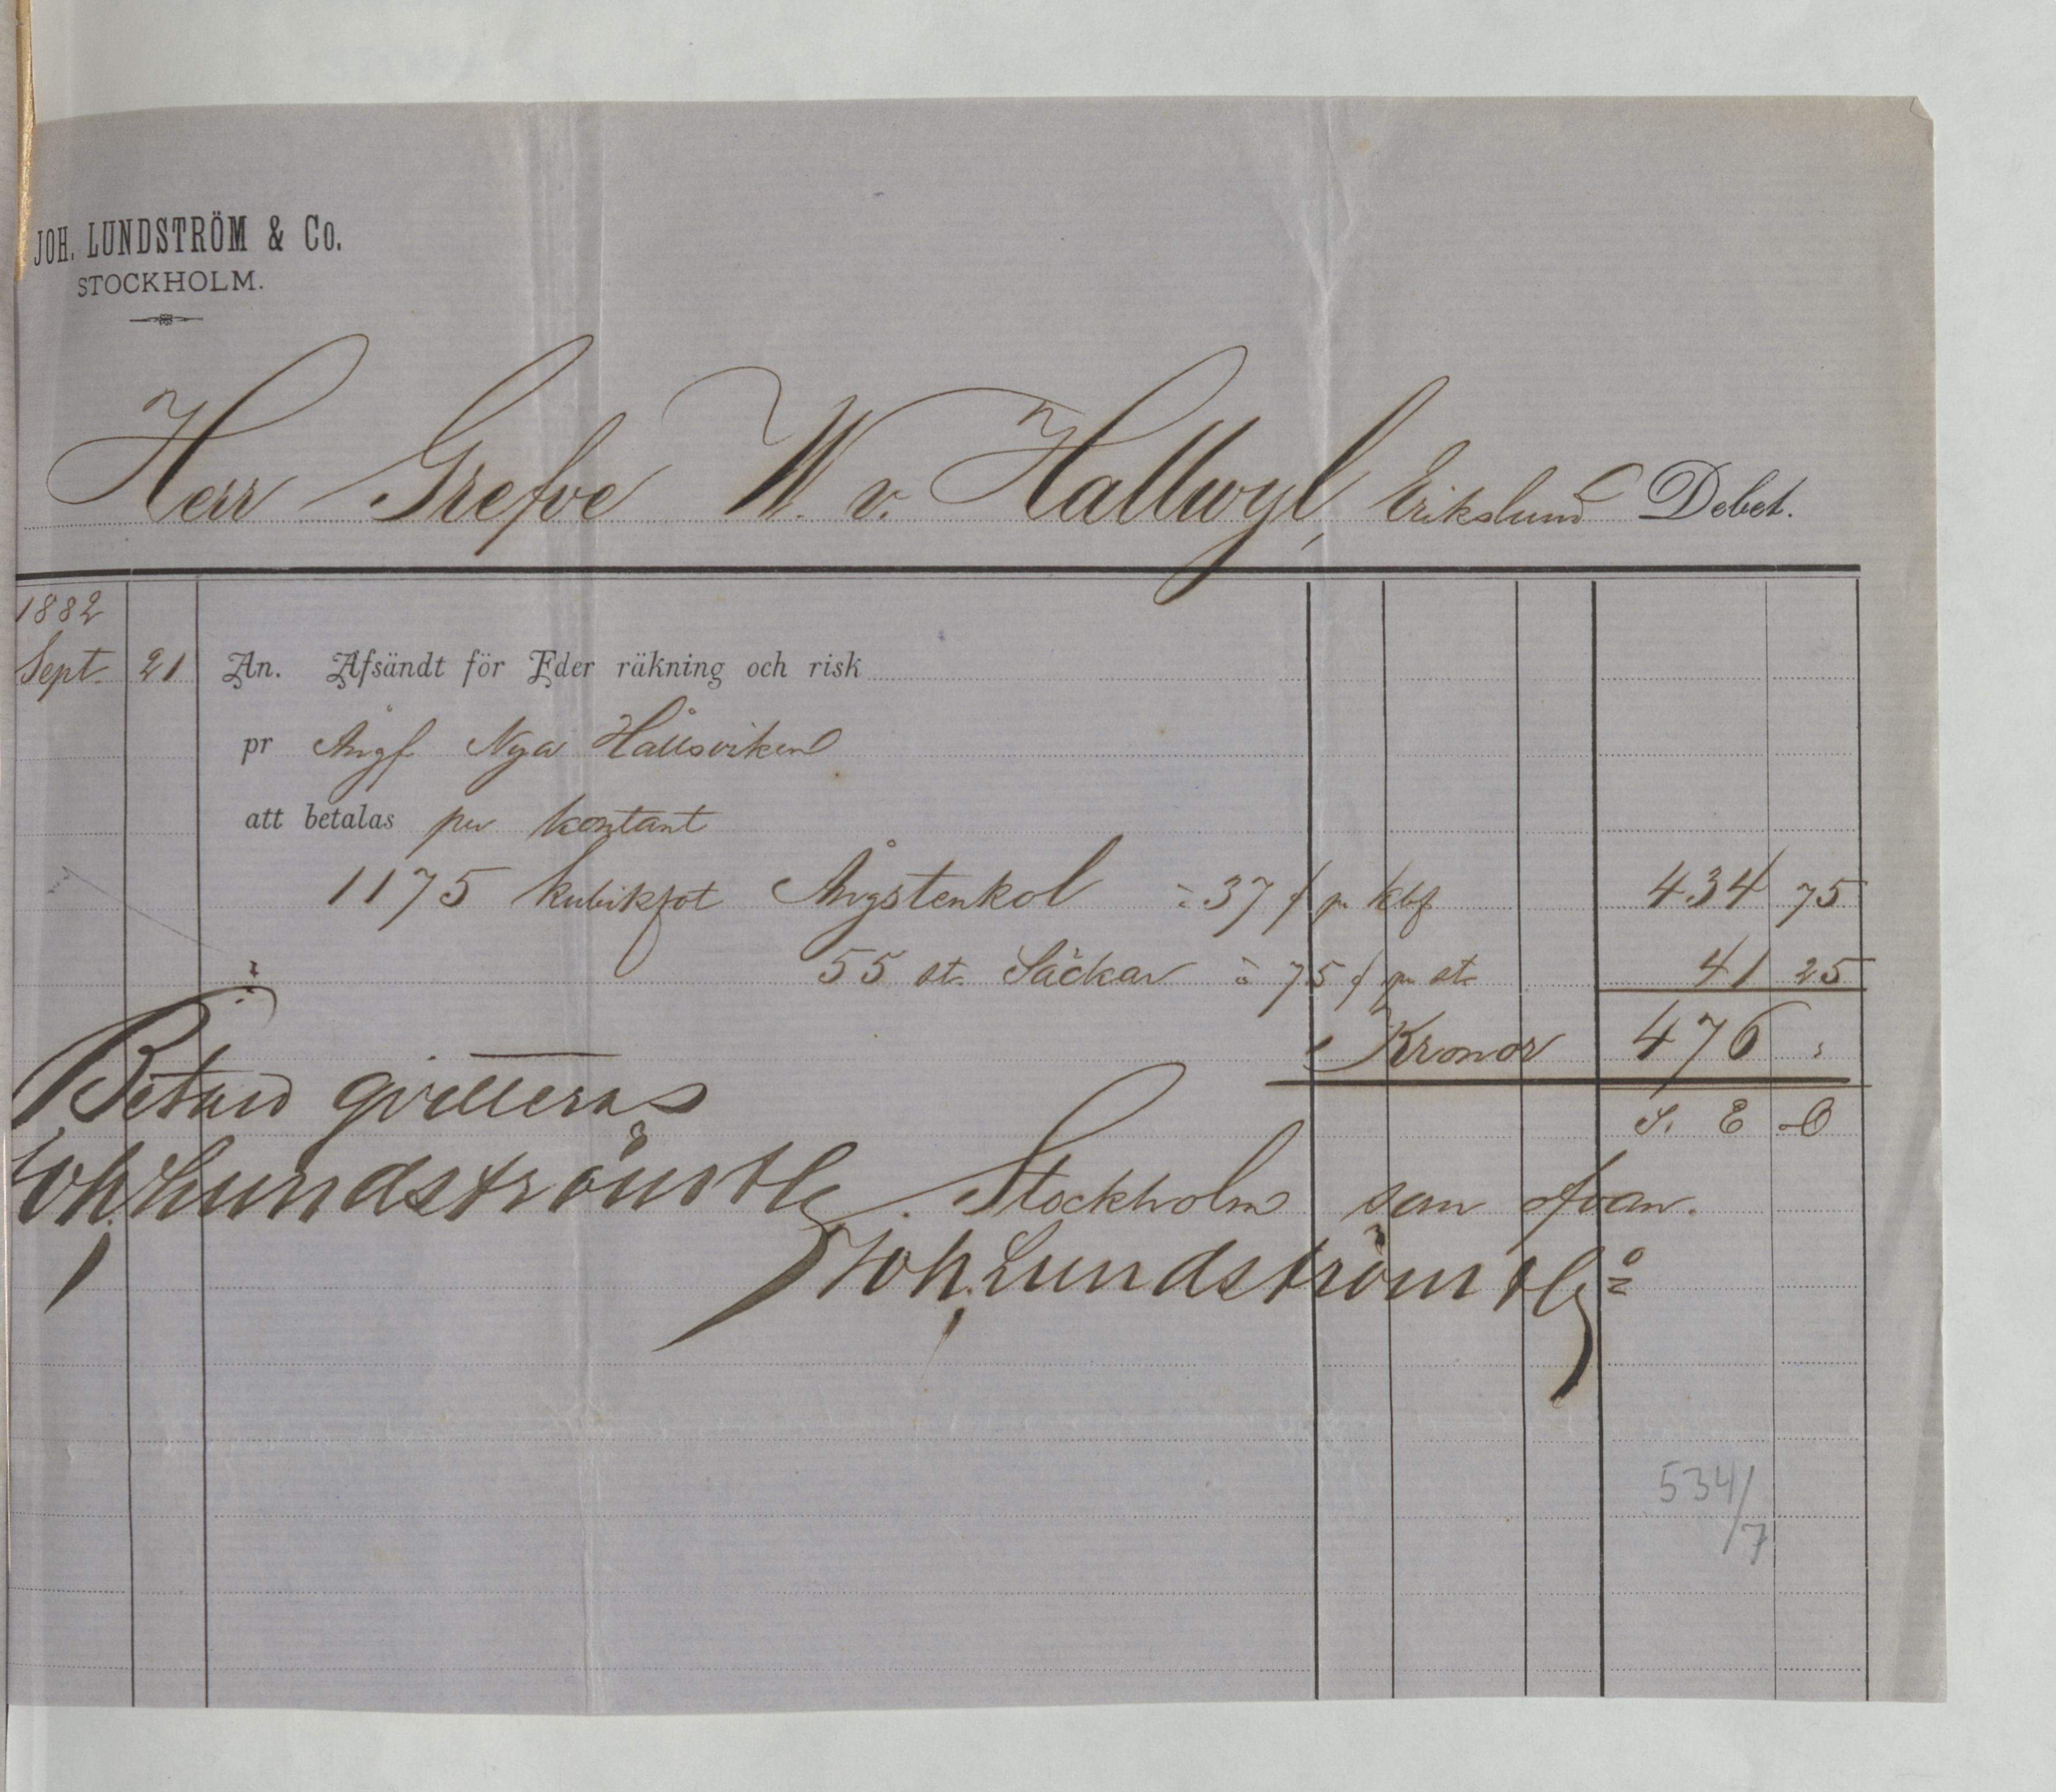 JOH. LUNDSTRÖM & Co.
STOCKHOLM.
Herr Grefve W. v. Hallwyl, Erikslund Debet.
1882
Sept. 21 An. Afsändt för Eder räkning och risk
pr Ångf Nya Hållsviken
att betalas per kontant
1175 kubikfot Ångstenkol à 37 f pr kbf 434 75
55 st. Säckar à 75 f pr st 41 25
Kronor 476 "
S. E. & O
Betald qvitteras
Joh. Lundström & Co
Stockholm som ofvan.
Joh. Lundström & Co
534/7